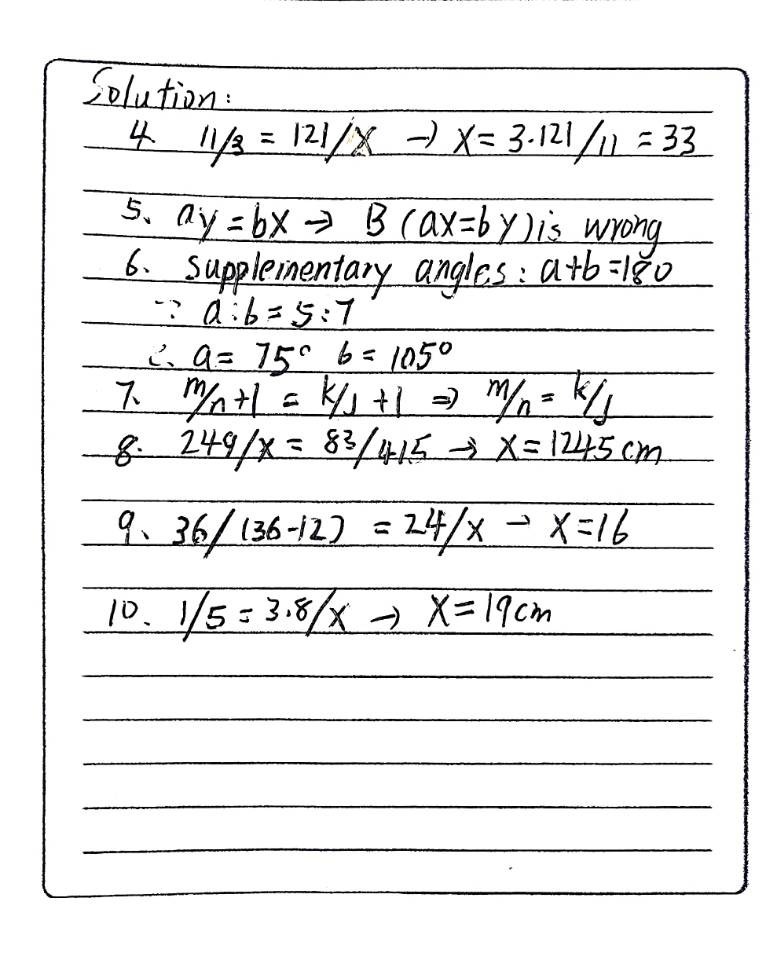 Solution:
4. 11/3 = 121/x → x = 3·121/11 = 33
5、ay = bx → B (ax=by) is wrong
6. supplementary angles: a+b=180
∵ a:b = 5:7
∴ a = 75° b = 105°
7、m/n+1 = k/j+1 ⇒ m/n = k/j
8. 249/x = 83/415 → x = 1245cm
9、36/(36-12) = 24/x → x=16
10、1/5 = 3.8/x → x = 19cm